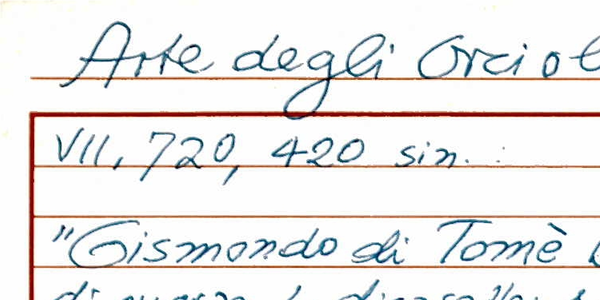 Arte degli Orciol
VII, 720, 420 sin. :
"Gismondo di Tomè
di